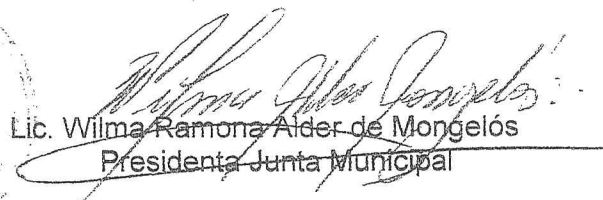 Wilma Alder Mongelós
Lic. Wilma Ramona Alder de Mongelós
Presidenta Junta Municipal